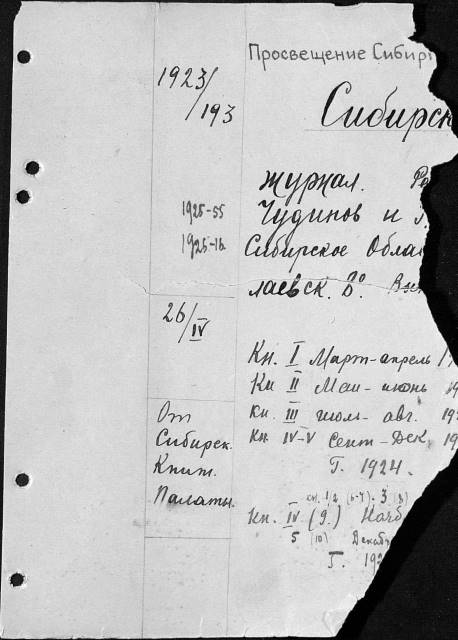 Просвещение Сибири
1923/193
Сибирск
журнал. Ре
1925-55
Чудинов и
1925-16
Сибирское Облас
лаевск. 8°.
26/IV
Кн. I Март-апрель
Кн II Маи-июнь 19
Кн. III июль-авг. 19
Кн IV-V Сент-Дек. 19
От
Сибирск.
Книж.
Палаты.
Г. 1924.
кн. 1/2 (6-7). 3 (8)
Кн. IV (9.) Нояб
5 (10) Декаб
Г. 192